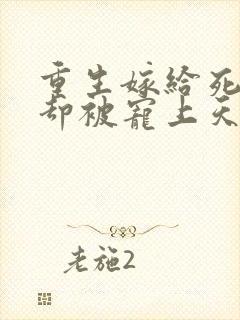 重生嫁给死
却被宠上天
老施2